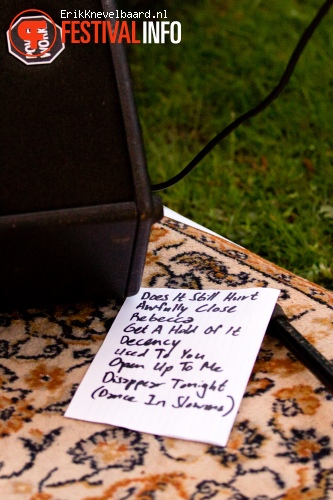 ErikKnevelbaard.nl
FESTIVALINFO
Does It Still Hurt
Awfully Close
Rebecca
Get A Hold Of It
Decency
Used To You
Open Up To Me
Disappear Tonight
(Dance In Slowmo)